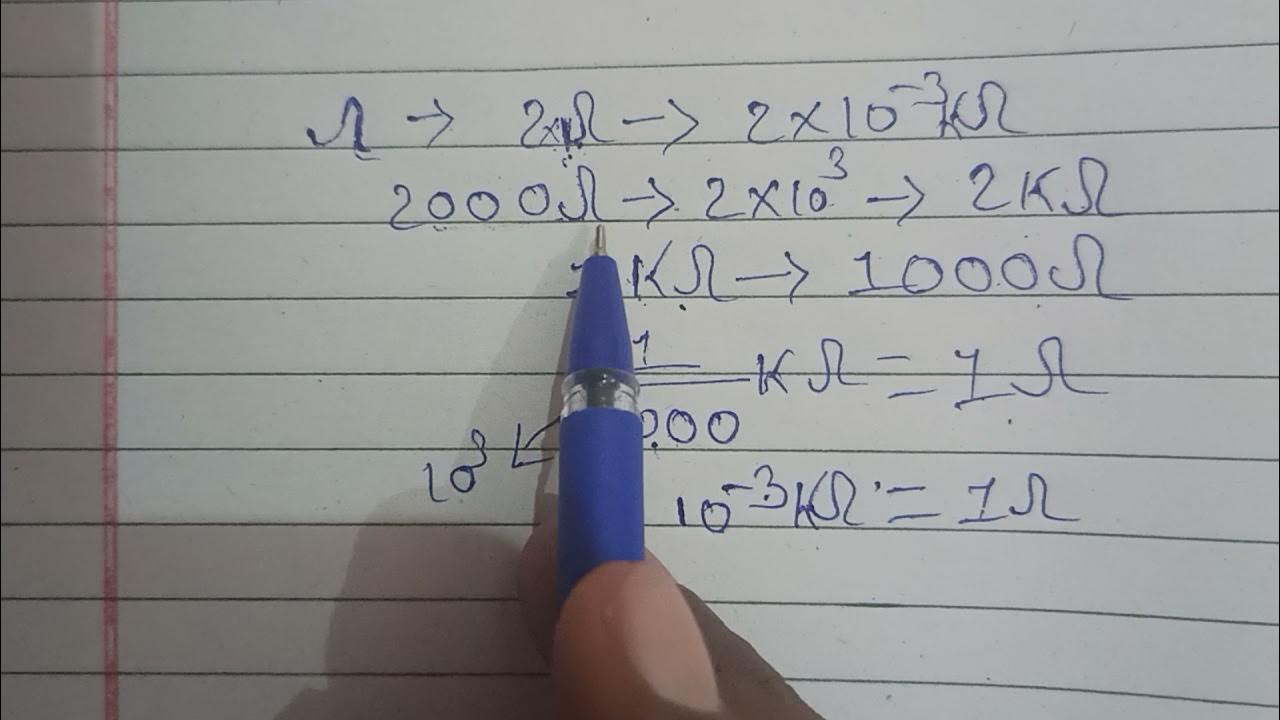 Ω → 2×Ω → 2×10⁻³KΩ
2000Ω → 2×10³ → 2KΩ
KΩ → 1000Ω
1
KΩ = 1Ω
000
10³
10⁻³KΩ = 1Ω